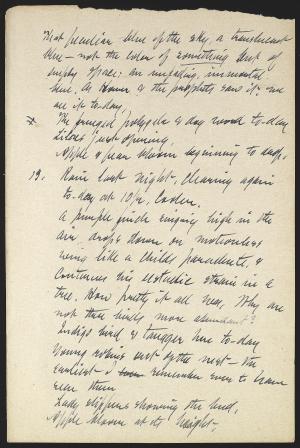 That peculiar blue of the sky, a translucent
blue – not the color of something but of
empty space; an unfading, immortal
hue. As Homer & the prophets saw it, we
see it to-day.
x The fringed polygala & dog wood to-day
just opening.
Apple & pear bloom beginning to drop.
19. Rain last night, clearing again
to-day at 10 A, cooler.
A purple finch singing high in the
air drops down on motionless
wing like a child's parachute, &
continues his ecstatic strain in a
tree. How pretty it all was. Why are
not these birds more abundant?
Indigo bird & tanager here to-day
Young robins out of the nest – the
earliest I remember ever to have
seen them
Lady slippers showing the bud,
Apple bloom at its height.